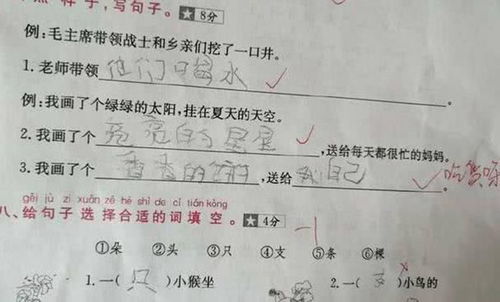 点样子，写句子。★ 8分
例：毛主席带领战士和乡亲们挖了一口井。
1. 老师带领他们口留水。
例：我画了个绿绿的太阳，挂在夏天的天空。
2. 我画了个亮亮的星星，送给每天都很忙的妈妈。
3. 我画了个香香的，送给我自己。
gěi jù zi xuǎn zé hé shì de cí tián kòng
八、给句子选择合适的词填空。★ 4分
-1
①朵 ②头 ③只 ④支 ⑤条 ⑥棵
1. 一（只）小猴坐 2. 一（支）小鸟的